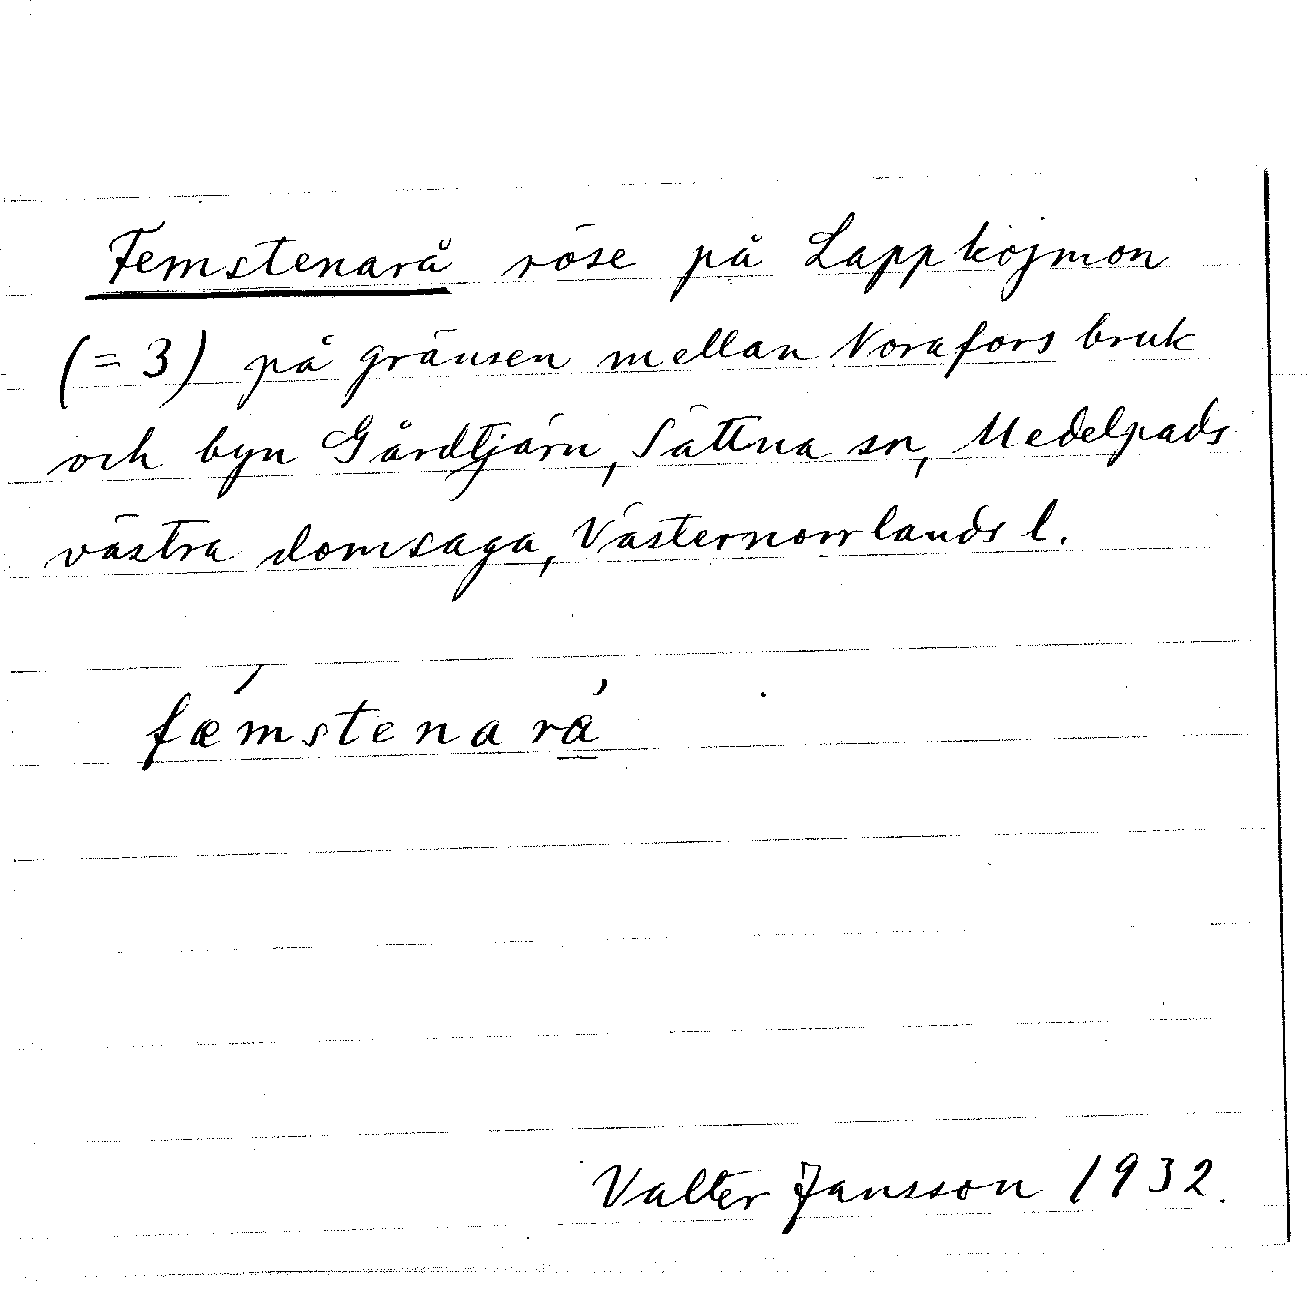 Femstenarå röse på Lappkojmon
(= 3) på gränsen mellan Norafors bruk
och byn Gårdtjärn, Sättna sn, Medelpads
västra domsaga, Västernorrlands l.
fæmstenara
Valter Jansson 1932.